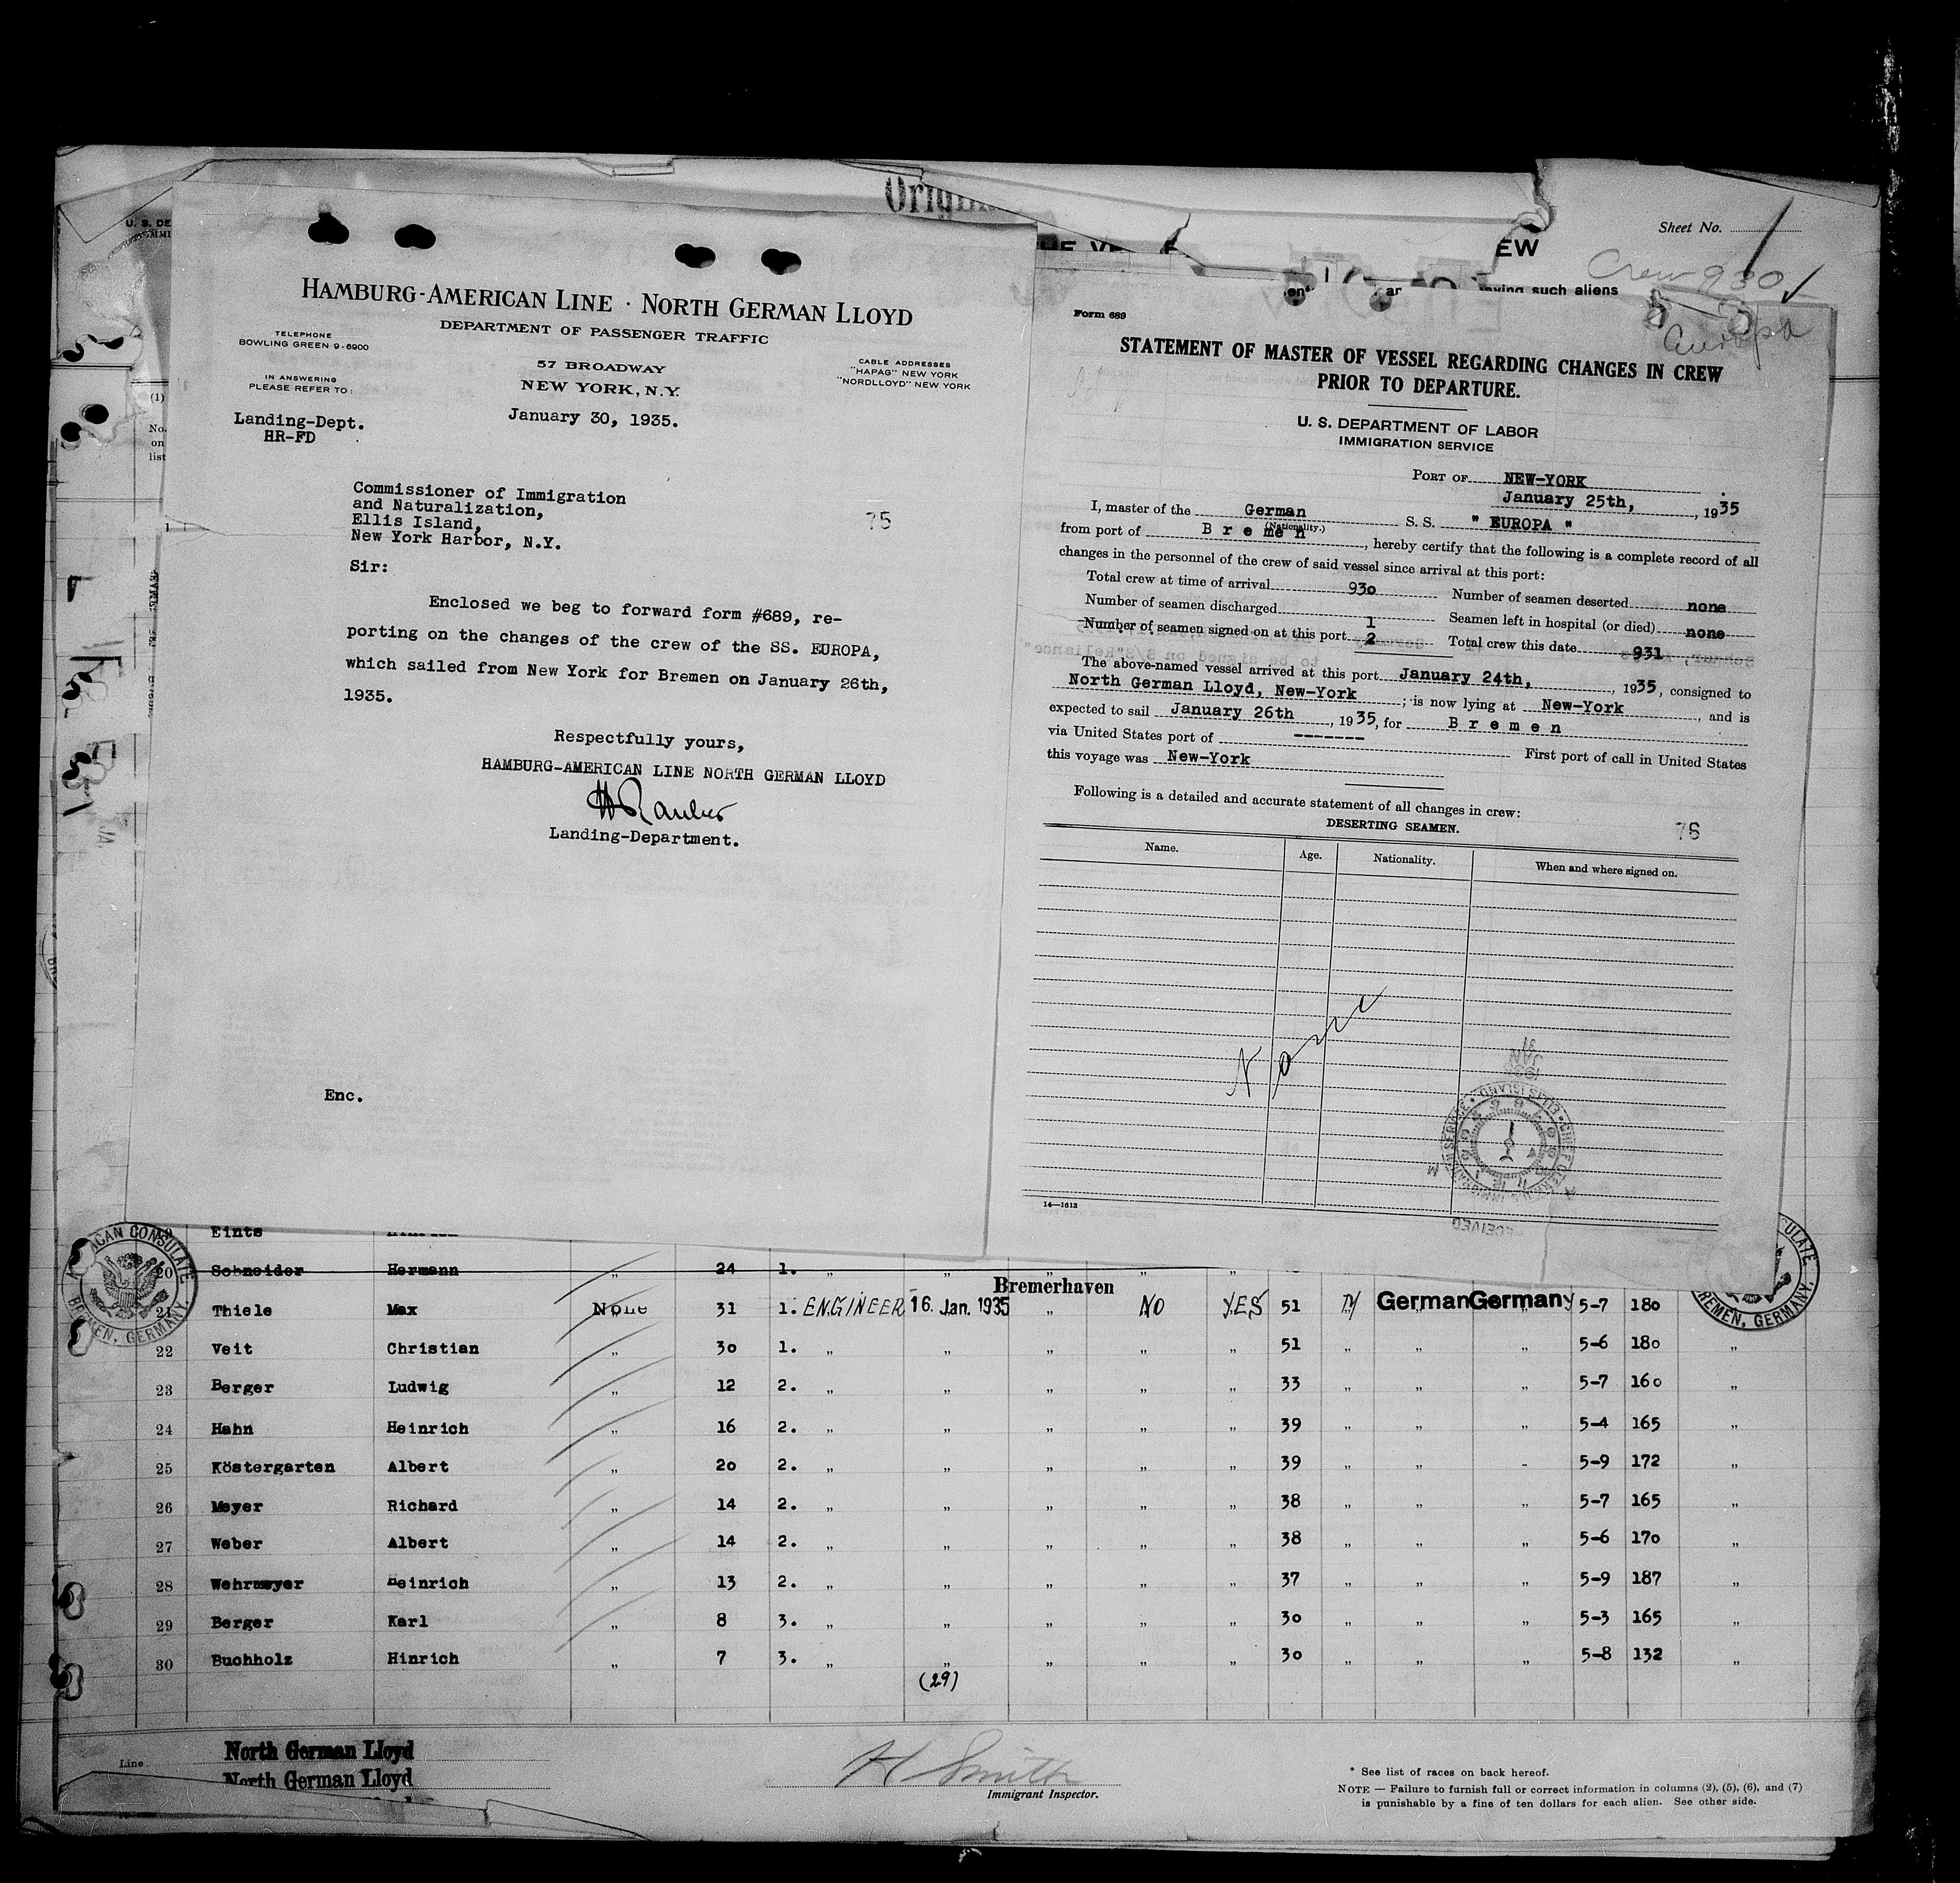 Original
U. S. DE
Sheet No.
EW
Crew 930
aving such aliens
(1)
No.
on
list
HAMBURG-AMERICAN LINE · NORTH GERMAN LLOYD
DEPARTMENT OF PASSENGER TRAFFIC
TELEPHONE
BOWLING GREEN 9-6900
57 BROADWAY
NEW YORK, N.Y.
CABLE ADDRESSES
"HAPAG" NEW YORK
"NORDLLOYD" NEW YORK
IN ANSWERING
PLEASE REFER TO:
January 30, 1935.
Landing-Dept.
HR-FD
Commissioner of Immigration
and Naturalization,
Ellis Island,
New York Harbor, N.Y.
75
Sir:
Enclosed we beg to forward form #689, re-
porting on the changes of the crew of the SS. EUROPA,
which sailed from New York for Bremen on January 26th,
1935.
Respectfully yours,
HAMBURG-AMERICAN LINE NORTH GERMAN LLOYD
Landing-Department.
Enc.
Form 689
Europa
STATEMENT OF MASTER OF VESSEL REGARDING CHANGES IN CREW
PRIOR TO DEPARTURE.
U. S. DEPARTMENT OF LABOR
IMMIGRATION SERVICE
PORT OF NEW-YORK
January 25th, , 1935
I, master of the German S. S. " EUROPA "
(Nationality.)
from port of B r e m e n , hereby certify that the following is a complete record of all
changes in the personnel of the crew of said vessel since arrival at this port:
Total crew at time of arrival 930 Number of seamen deserted none
Number of seamen discharged 1 Seamen left in hospital (or died) none
Number of seamen signed on at this port 2 Total crew this date 931
The above-named vessel arrived at this port January 24th, , 1935, consigned to
North German Lloyd, New-York ; is now lying at New-York , and is
expected to sail January 26th , 1935, for B r e m e n
via United States port of ------- First port of call in United States
this voyage was New-York
Following is a detailed and accurate statement of all changes in crew:
DESERTING SEAMEN.
76
Name. Age. Nationality. When and where signed on.
None
1935
JAN
31
IMMIGRATION SERVICE · ELLIS ISLAND
14—1613
Eints
20 Schneider Hermann „ 24 1. „ „ „ „ „
Bremerhaven
21 Thiele Max None 31 1. ENGINEER 16. Jan. 1935 „ NO YES 51 M German Germany 5-7 180
22 Veit Christian „ 30 1. „ „ „ „ „ 51 „ „ „ 5-6 180 „
23 Berger Ludwig „ 12 2. „ „ „ „ „ 33 „ „ „ 5-7 160 „
24 Hahn Heinrich „ 16 2. „ „ „ „ „ 39 „ „ „ 5-4 165 „
25 Köstergarten Albert „ 20 2. „ „ „ „ „ 39 „ „ „ 5-9 172 „
26 Meyer Richard „ 14 2. „ „ „ „ „ 38 „ „ „ 5-7 165 „
27 Weber Albert „ 14 2. „ „ „ „ „ 38 „ „ „ 5-6 170 „
28 Wehrmeyer Heinrich „ 13 2. „ „ „ „ „ 37 „ „ „ 5-9 187 „
29 Berger Karl „ 8 3. „ „ „ „ „ 30 „ „ „ 5-3 165 „
30 Buchholz Hinrich „ 7 3. „ „ „ „ „ 30 „ „ „ 5-8 132 „
(29)
AMERICAN CONSULATE
BREMEN, GERMANY.
Line North German Lloyd
North German Lloyd
H Smith
Immigrant Inspector.
* See list of races on back hereof.
NOTE — Failure to furnish full or correct information in columns (2), (5), (6), and (7)
is punishable by a fine of ten dollars for each alien. See other side.